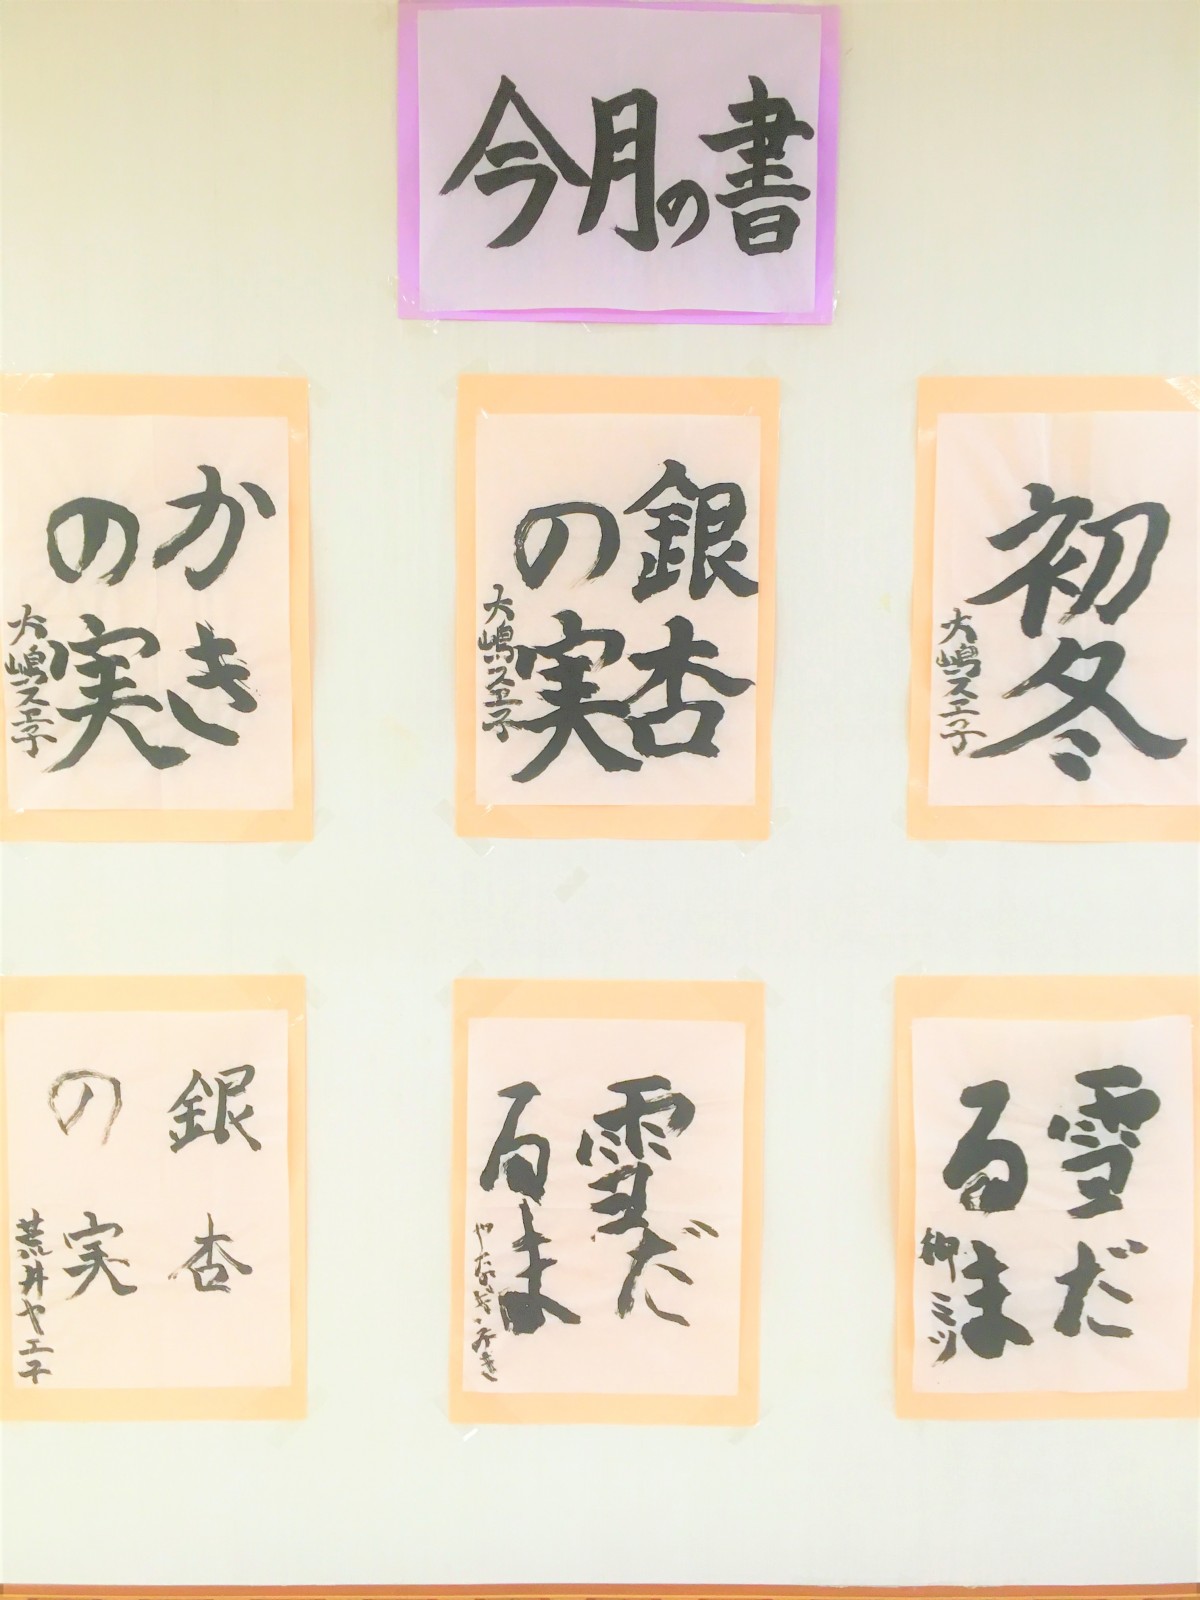 今月の書
初冬
大嶋スエ子
銀杏
の実
大嶋スエ子
かき
の実
大嶋スエ子
雪だ
るま
柳ミツ
雪だ
るま
銀杏
の実
荒井ヤエ子